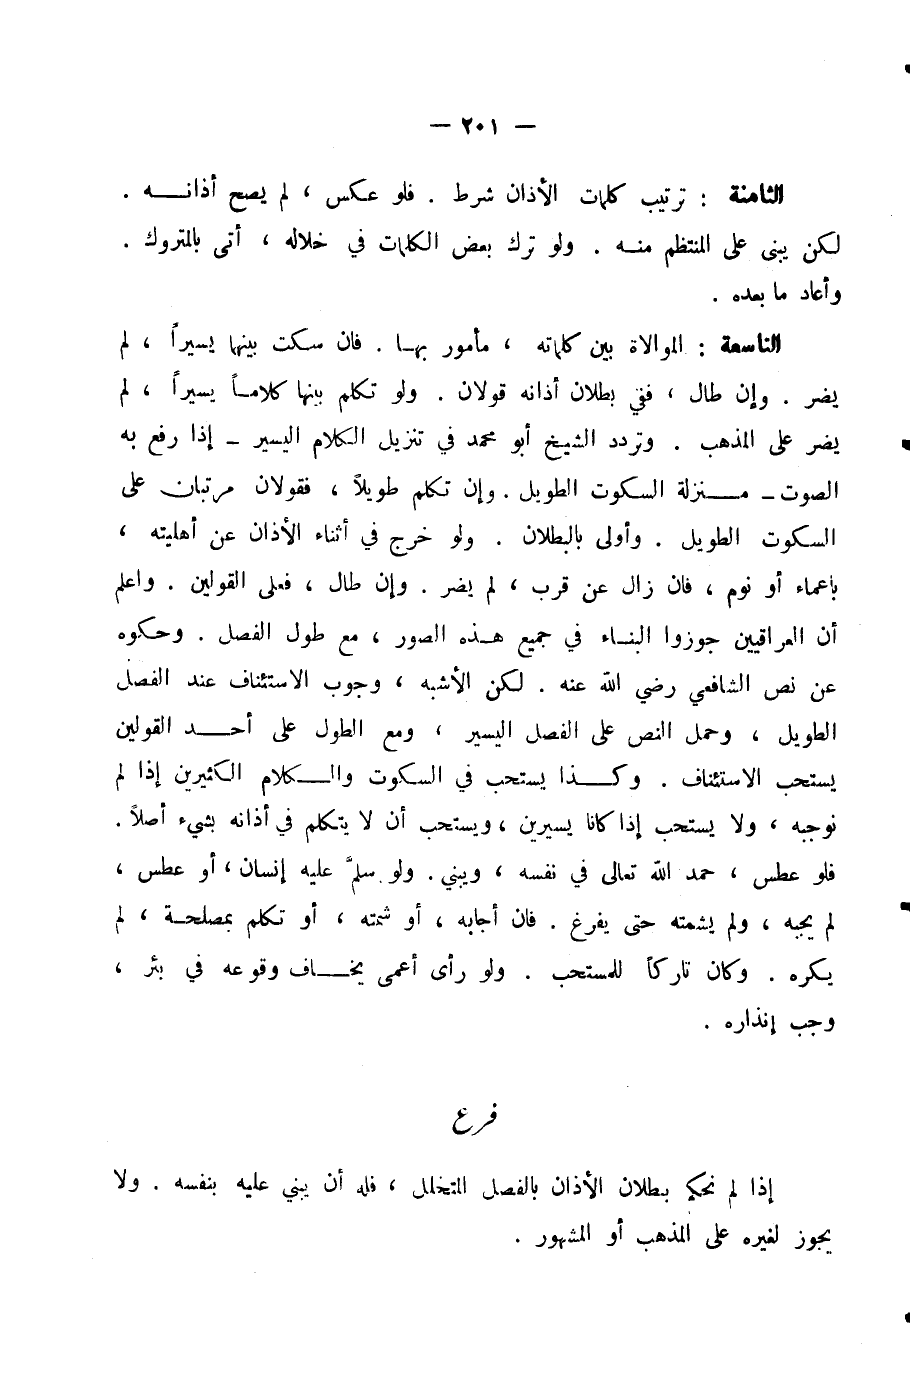 — ٢٠١ —
الثامنة : ترتيب كلمات الأذان شرط . فلو عكس ، لم يصح أذانه .
لكن يبنى على المنتظم منه . ولو ترك بعض الكلمات في خلاله ، أتى بالمتروك .
وأعاد ما بعده .
التاسعة : الموالاة بين كلماته ، مأمور بها . فان سكت بينها يسيراً ، لم
يضر . وإن طال ، ففي بطلان أذانه قولان . ولو تكلم بينها كلاماً يسيراً ، لم
يضر على المذهب . وتردد الشيخ أبو محمد في تنزيل الكلام اليسير - إذا رفع به
الصوت - منزلة السكوت الطويل . وإن تكلم طويلاً ، فقولان مرتبان على
السكوت الطويل . وأولى بالبطلان . ولو خرج في أثناء الأذان عن أهليته ،
باغماء أو نوم ، فان زال عن قرب ، لم يضر . وإن طال ، فعلى القولين . واعلم
أن العراقيين جوزوا البناء في جميع هذه الصور ، مع طول الفصل . وحكوه
عن نص الشافعي رضي الله عنه . لكن الأشبه ، وجوب الاستئناف عند الفصل
الطويل ، وحمل النص على الفصل اليسير ، ومع الطول على أحد القولين
يستحب الاستئناف . وكذا يستحب في السكوت والكلام الكثيرين إذا لم
نوجبه ، ولا يستحب إذا كانا يسيرين ، ويستحب أن لا يتكلم في أذانه بشيء أصلاً .
فلو عطس ، حمد الله تعالى في نفسه ، ويبني . ولو سلمَّ عليه إنسان ، أو عطس ،
لم يجبه ، ولم يشمته حتى يفرغ . فان أجابه ، أو شمته ، أو تكلم بمصلحة ، لم
يكره . وكان تاركاً للمستحب . ولو رأى أعمى يخاف وقوعه في بئر ،
وجب إنذاره .
فرع
إذا لم نحكم ببطلان الأذان بالفصل المتخلل ، فله أن يبني عليه بنفسه . ولا
يجوز لغيره على المذهب أو المشهور .